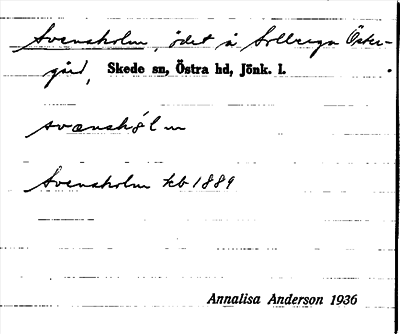 Svensholm, ödet å Solberga Öster-
gård, Skede sn, Östra hd, Jönk. l.
svænshɔ́lm
Svensholm kb 1889
Annalisa Anderson 1936